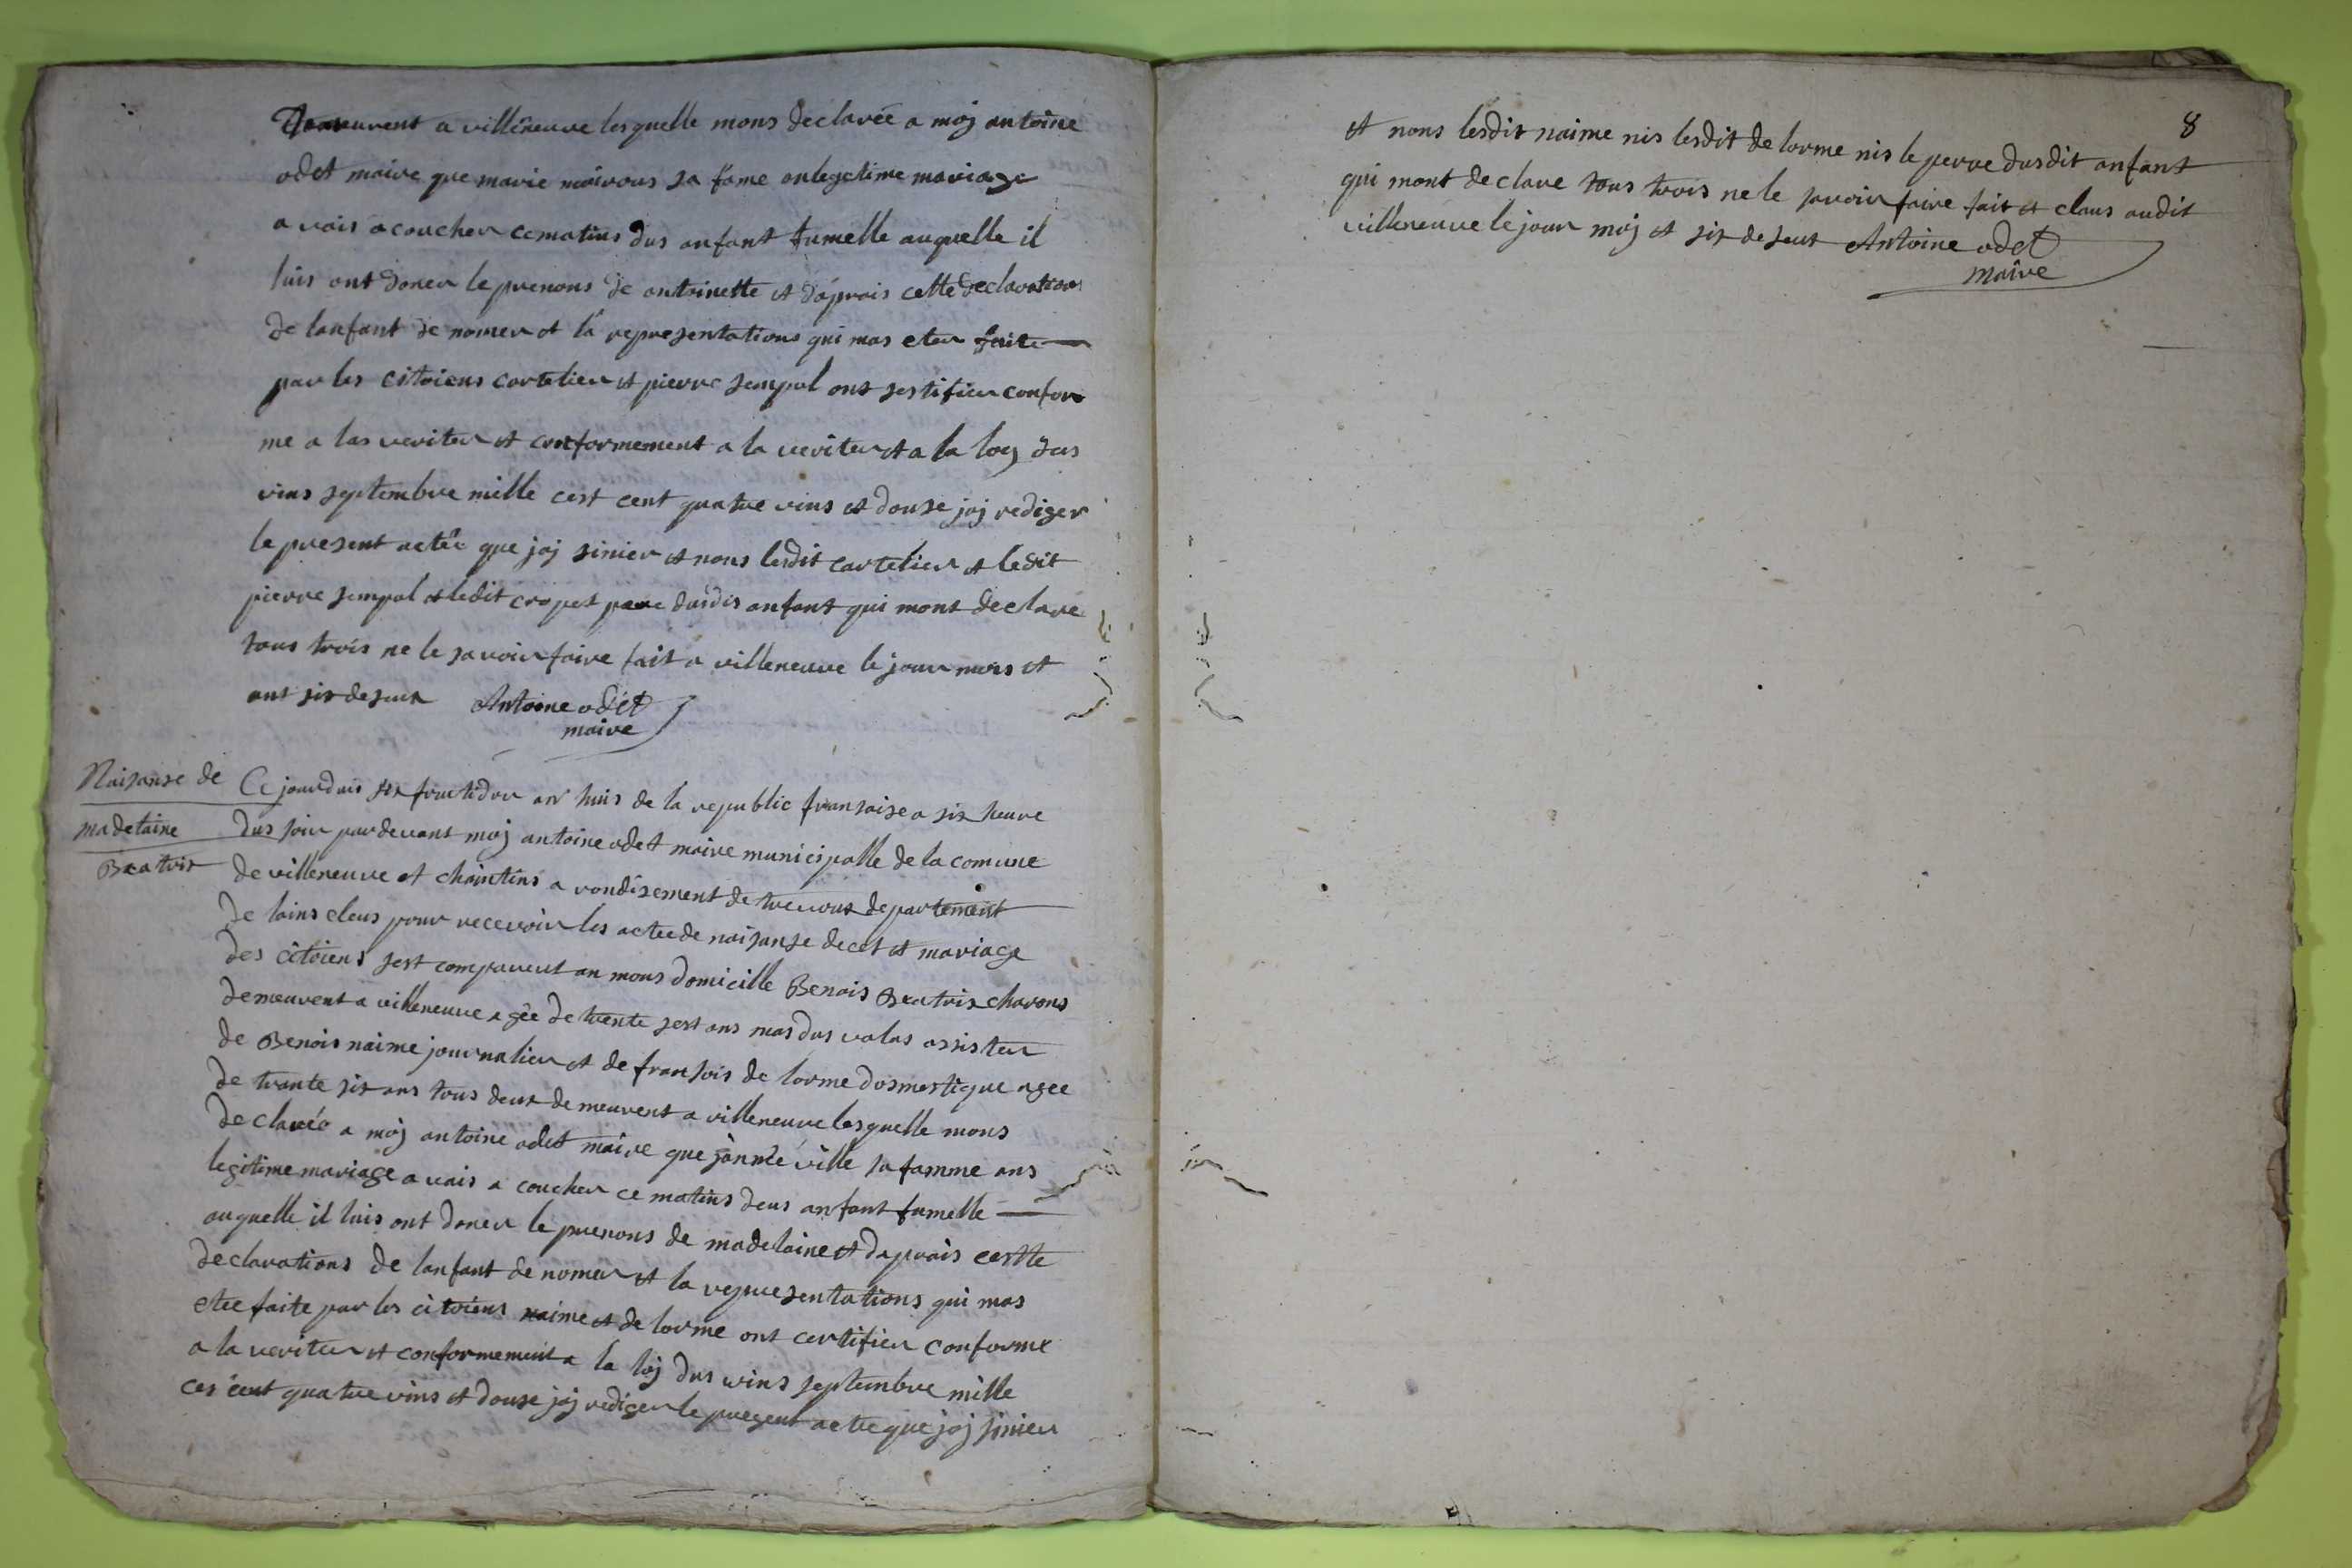 Demeurent a villeneuve lesquelle mons declarée a moj antoine
odet maire que marie mairous sa fame anlegetime mariage
a vais acoucher cematins dus anfant fumelle auquelle il
luis ont doner le prenons de antoinette et daprais cette declarations
de lanfant de nomer et la representations qui mas eter faite
par les citoiens cartelier et pierre sempol ont sertifier confor
me a las veriter et conformement a la veriter et a la loy dus
vins septembre mille cest cent quatre vins et douse jaj rediger
le present actée que jaj sinier et nons lesdit cartelier et ledit
pierre sempol et ledit cropet pere dusdis anfant qui mont declare
tous trois ne le savoir faire fait a villeneuve le jour mois et
ant sis desus Antoine odet
maire
Naisanse de
madelaine
Beatrix
Ce jourduis six fructidor an huis de la republic fransaise a six heure
dus soir pardevant moj antoine odet maire municipalle de la comune
de villeneuve et chaintins a rondisement de trevoux departement
de lains eleus pour recevoir les actee de naisanse decet et mariage
des citoiens sest compareut an mons domicille Benois Beatrix charons
demeurent a villeneuve agée de trente sest ans mas dus valas assister
de Benois naime journalier et de fransois de lorme dosmestique agee
de trante six ans tous deux demeurent a villeneuve lesquelle mons
declarée a moj antoine odet maire que janne ville sa famme ans
legitime mariage a vais a coucher ce matins deus anfant fumelle
auquelle il luis ont doner le prenons de madelaine et daprais cestte
declarations de lanfant de nomer et la representations qui mas
etee faite par les citoiens naime et de lorme ont certifier conforme
a la veriter et conformement a la loj dus vins septembre mille
ces cent quatre vins et douse jaj rediger le present actee que jaj sinier
8
et nons lesdit naime nis lesdit de lorme nis le perre dusdit anfant
qui mont declare tous trois ne le savoir faire fait et claus audit
villeneuve le jour moj et sis desus Antoine odet
maire